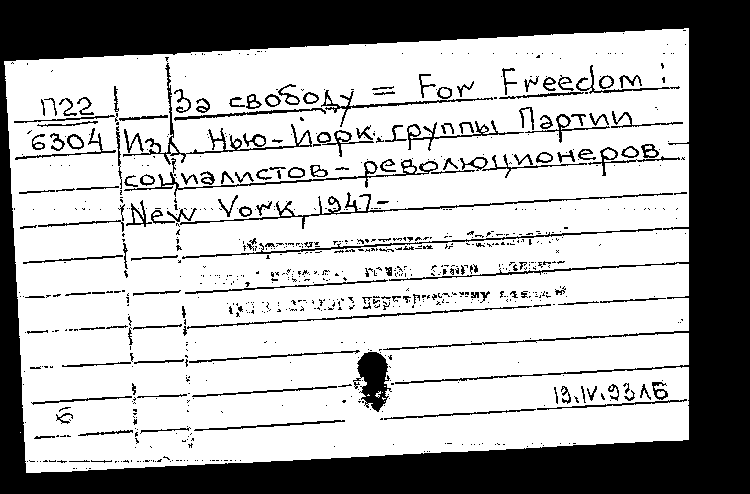 П22 За свободу = For Freedom :
6304 Изд. Нью-Йорк. группы Партии
социалистов-революционеров.-
New York, 1947-
6
19.IV.93 ЛБ